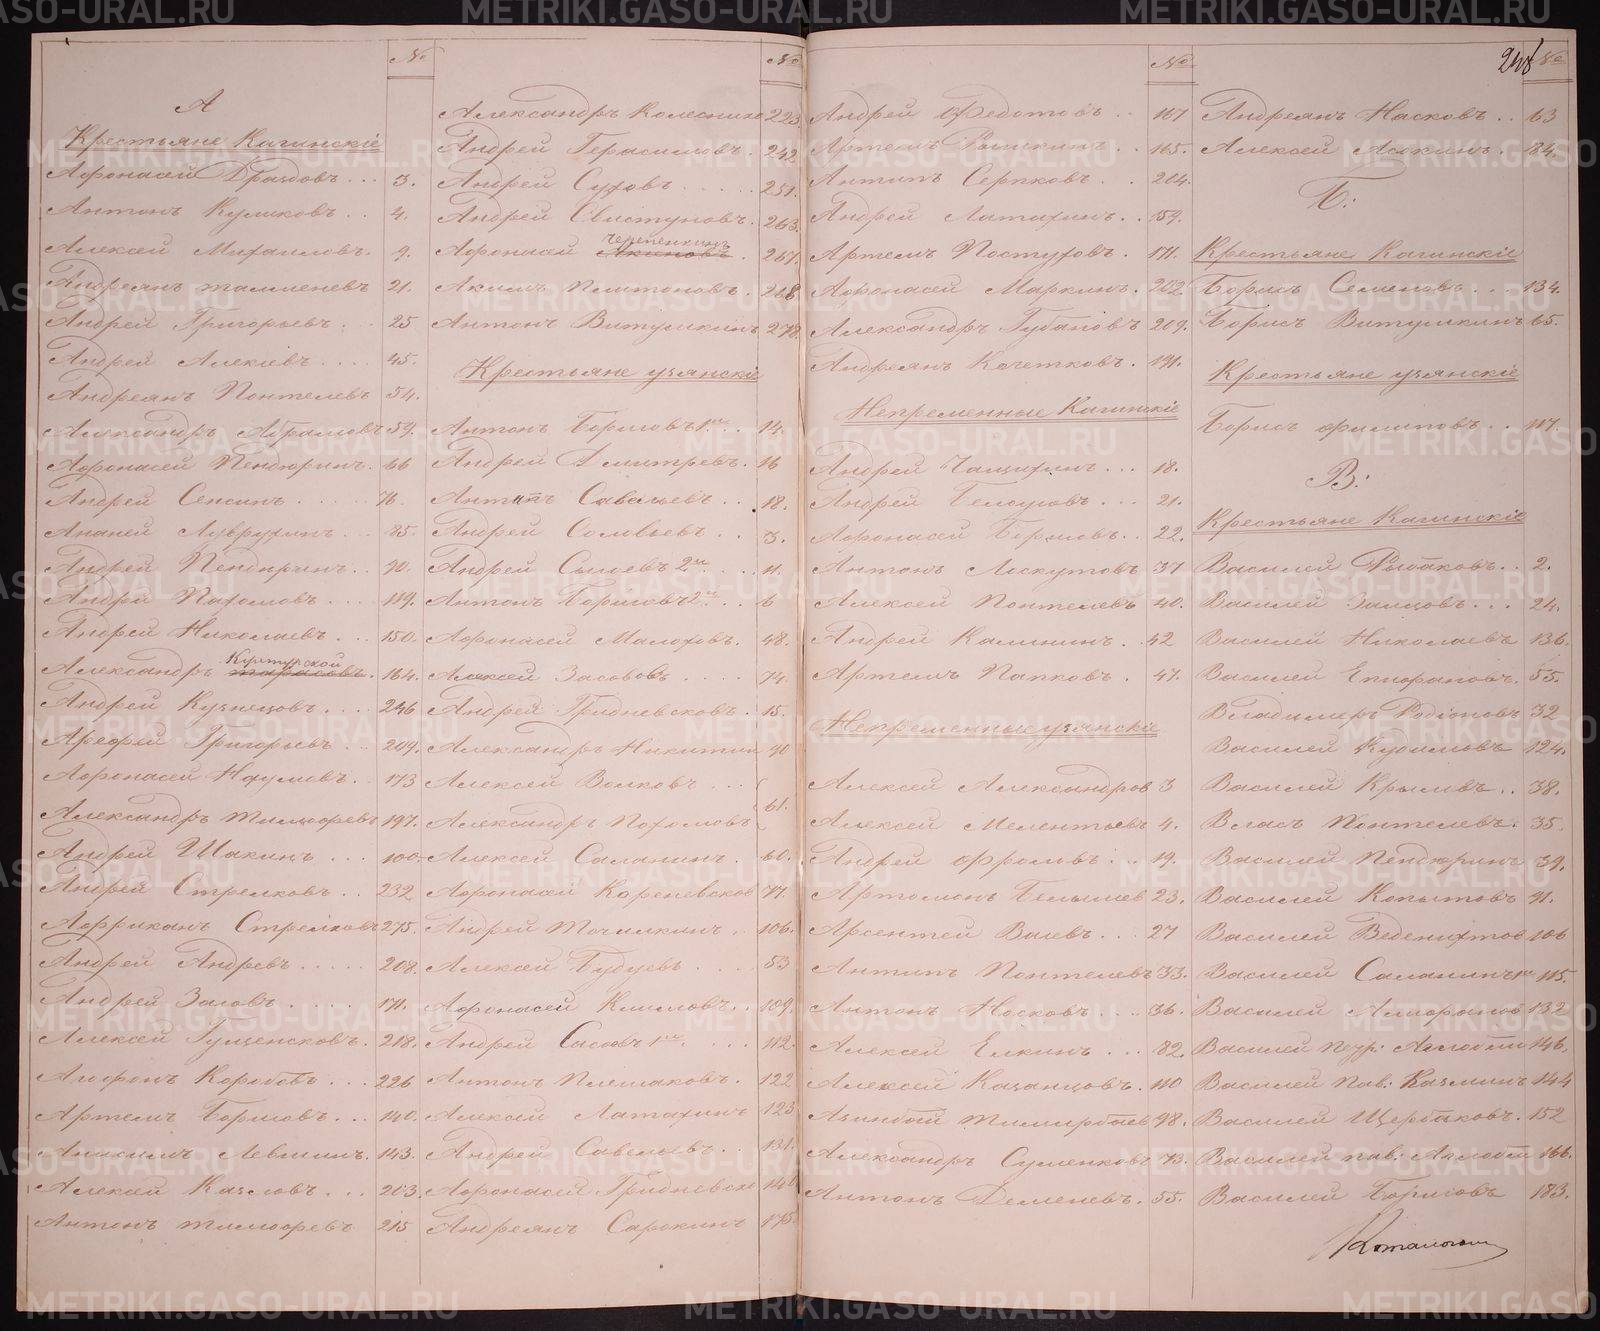 №
А
Крестьяне Кагинскіе
Афонасей Дроздовъ 3.
Антонъ Куликовъ 4.
Алексей Михаиловъ 9.
Андреянъ 21.
Андрей Григорьевъ 25
Андрей Алексіевъ 45.
Андреянъ Понтелевъ 54.
Александръ Абрамовъ 59.
Афонасей Пендюринъ 66
Андрей Сенсинъ 76.
Ананей 85.
Андрей Пендюринъ 90.
Андрей Пахомовъ 119.
Андрей Николаевъ 150.
Александръ 164.
Андрей Кузнецовъ 246
Арефей Григорьевъ 209.
Афонасей Наумовъ 173
Александръ Тимофеевъ 197.
Андрей Шакинъ 100.
Андрей Стрелковъ 232
Аффриканъ Стрелковъ 275.
Андрей Андревъ 208.
Андрей Заговъ 171.
Алексей Гущенсковъ 218.
Агафонъ Коробовъ 226
Артемъ Борисовъ 140.
Анисимъ Левшинъ 143.
Алексей Казловъ 203.
Антонъ Тимофревъ 215
№
Александръ Колесник 223.
Андрей Герасимовъ 242
Андрей Суховъ 251.
Андрей Свистуновъ 263.
Афонасей Черепенкинъ 267.
Акимъ Плотоновъ 268
Антонъ Витушкинъ 278.
Крестьяне узянскіе
Антонъ Борисовъ 1й 14.
Андрей Дмитревъ 16
Антипъ Савельевъ 18.
Андрей Соловьевъ 3.
Андрей Сысоевъ 2й 11.
Антонъ Борисовъ 2й 6
Афонасей Малоховъ 48.
Алексей Засововъ 74.
Андрей Гридневсковъ 15.
Александръ Никитин 90
Алексей Волковъ
Александръ Похомовъ 61.
Алексей Саланинъ 60.
Афонасей Кореневсков 77.
Андрей Точилкинъ 106.
Алексей Будуевъ 53
Афонасей Климовъ 109.
Андрей Сасовъ 1й 112.
Антонъ Плешаковъ 122
Алексей Латахинъ 123
Андрей Савельевъ 131.
Афонасей Гридневско 146
Андреянъ Сарокинъ 175.
№
Андрей Федотовъ 167
Артемъ Рышкинъ 165.
Антипъ Серпковъ 204.
Андрей Латахинъ 159.
Артемъ Постуховъ 171.
Афонасей Маркинъ 202
Александръ Губановъ 209.
Андреянъ Кочетковъ 191.
Непременные Кагинскіе
Андрей Чащихинъ 18.
Андрей Белоусовъ 21.
Афонасей Борисовъ 22.
Антонъ Лоскутовъ 37
Алексей Понтелевъ 40.
Андрей Калининъ 42
Артемъ Папковъ 47.
Непременные узянскіе
Алексей Александров 3
Алексей Мелентьевъ 4.
Андрей Фроловъ 19.
Артомонъ Белышев 23.
Арсентей Валевъ 27
Антипъ Понтелевъ 33.
Антонъ Носковъ 36.
Алексей Елкинъ 82.
Алексей Казанцовъ 110
Тимирбаев 98.
Александръ Суменковъ 73.
Антонъ Деменевъ 55.
248
№
Андреянъ Насковъ 63
Алексей Асокинъ 84.
Б:
Крестьяне Кагинскіе
Борисъ Семеновъ 134.
Борисъ Витушкинъ 65.
Крестьяне узянскіе
Борисъ Филиповъ 117.
В:
Крестьяне Кагинскіе
Василей Рыбаковъ 2.
Василей Заицовъ 24.
Василей Николаевъ 136.
Василей Епифановъ 55.
Владимеръ Родіоновъ 32
Василей Кудимовъ 124.
Василей Крыловъ 38.
Власъ Понтелевъ 35.
Василей Пендюринъ 39.
Василей Копытовъ 91.
Василей Веденихтов 106
Василей Саланинъ 1й 115.
Василей 132
Василей 146.
Василей пав: Казминъ 144
Василей Щербаковъ 152
Василей пав: 166.
Василей Борисовъ 183.